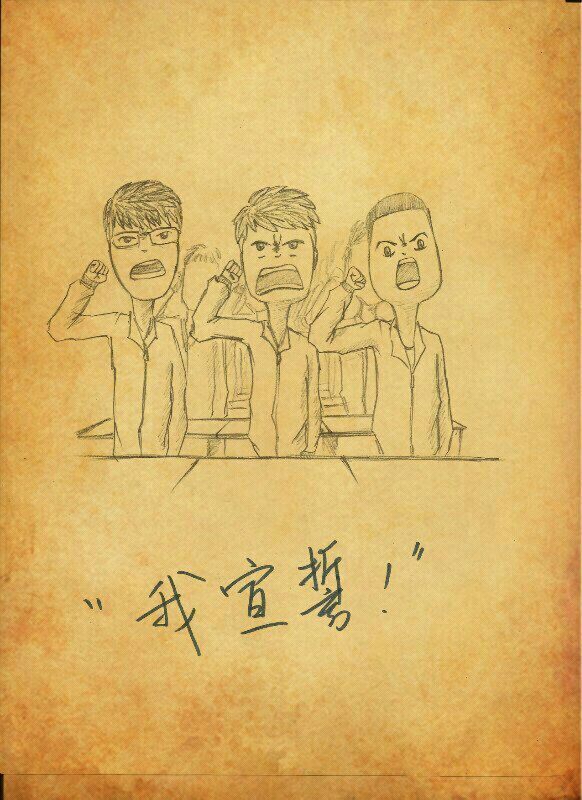 “我宣誓！”